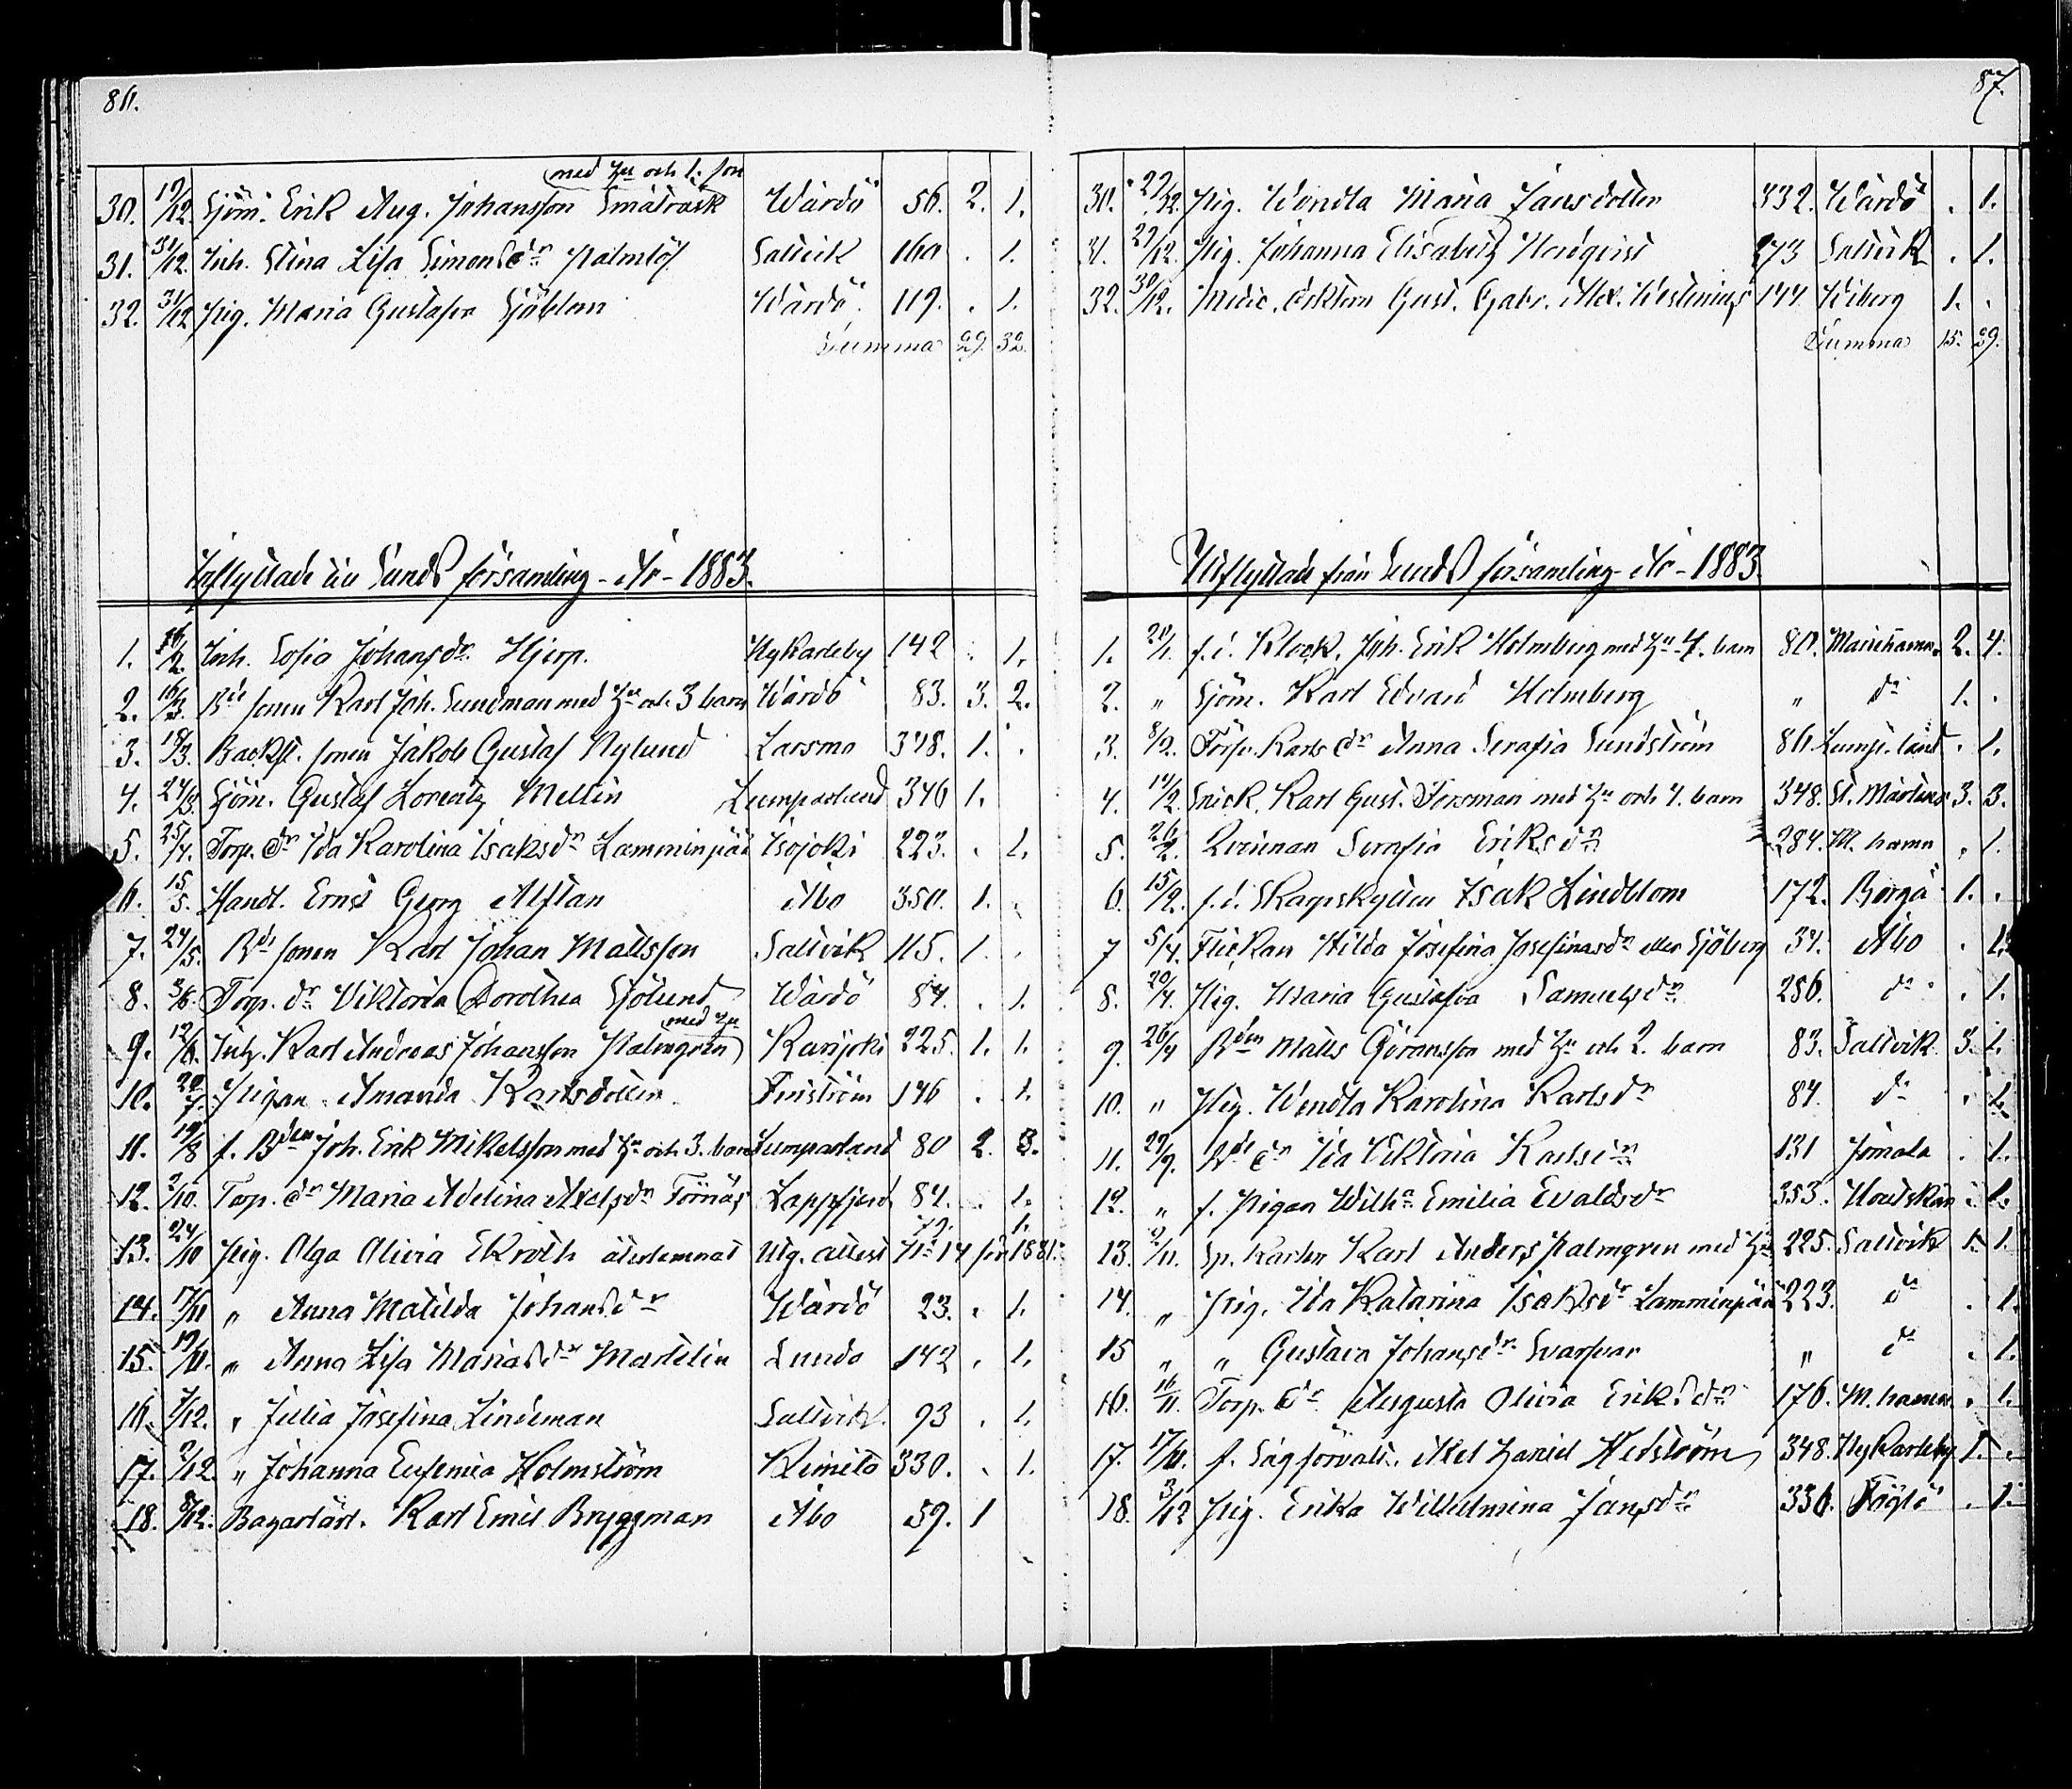 86.
med hu och 1. son
30. 19/12. Sjöm. Erik Aug. Johansson Småträsk Wårdö 56. 2. 1.
31. 31/12. Inh. Stina Lisa Simonsdr Palmlöf Saltvik 160 . 1.
32. 31/12 Pig. Maria Gustafva Sjöblom Wårdö 119. . 1.
Summa 29. 32.
Inflyttade till Sunds församling - År - 1883.
1. 16/2. Inh. Sofia Johansdr Hjerp. Nykarleby 142 . 1.
2. 16/3. Bde sonen Karl Joh. Sundman med hu och 3 barn Wårdö 83. 3. 2.
3. 18/3. Backst. sonen Jakob Gustaf Nylund Larsmo 378. 1. .
4. 24/3. Sjöm. Gustaf Lorentz Mellin Lumparland 346 1.
5. 25/4. Torp. dr Ida Karolina Isaksdr Lamminpää Isojoki 223. . 1.
6. 15/5. Handl. Ernst Georg Alftan Åbo 350. 1. .
7. 24/5. Bde sonen Karl Johan Mattsson Saltvik 115. 1. .
8. 3/6. Torp. dr Viktoria Dorothea Sjölund Wårdö 84. . 1.
med hu
9. 12/6. Inh. Karl Andreas Johansson Palmgren Karijoki 225. 1. 1.
10. 22/7. Pigan Amanda Karlsdotter Finström 146 . 1.
11. 19/8 f. Bden Joh. Erik Mikelsson med hu och 3. barn Lumparland 80 2. 3.
12. 2/10. Torp. dr Maria Adelina Axelsdr Törnäs Lappfjerd 84. . 1.
79. 1.
13. 24/10 Pig. Olga Olivia Ekroth återlemnat utg. attest No 14 för 1881.
14. 17/11 " Anna Matilda Johansdr Wårdö 23. . 1.
15. 19/11. " Anna Lisa Mariasdr Martelin Lundo 142 . 1.
16. 7/12. " Julia Josefina Lindeman Saltvik. 93 . 1.
17. 7/12. " Johanna Eufemia Holmström Kimito 330. . 1.
18. 8/12. Bagarlärl. Karl Emil Bryggman Åbo 59. 1
87.
30. 29/12. Pig. Wendla Maria Jansdotter 332. Wårdö . 1.
31. 29/12. Pig. Johanna Elisabeth Nordqvist 273 Saltvik . 1.
32. 30/12. Medic. doktorn Gust. Gabr. Alex. Westenius 144 Wiborg 1. .
Summa 15. 29.
Utflyttade från Sunds församling - År - 1883.
1. 21/1. f.d. Klock. Joh. Erik Holmberg med hu 4. barn 80. Mariehamn. 2. 4.
2. " Sjöm. Karl Edvard Holmberg " do 1. .
3. 8/2. Torp. Karls dr Anna Serafia Sundström 86. Lump.land . 1.
4. 14/2. Snick. Karl Gust. Forsman med hu och 4. barn 348. St. Mårtens 3. 3.
5. 26/2. Qvinnan Serafia Eriksdr 284. M. hamn . 1.
6. 15/2. f.d. Skarpskytten Isak Lindblom 172. Borgå 1. .
7 5/4. Flickan Hilda Josefina Josefinasdr eller Sjöberg 34. Åbo . 1.
8. 20/4. Pig. Maria Gustafva Samuelsdr 256. do . 1.
9. 26/4 Bden Matts Göransson med hu och 2. barn 83. Saltvik 3. 1.
10. " Pig. Wendla Karolina Karlsdr 84. do . 1.
11. 29/9. Bde dr Ida Viktoria Karlsdr 131 Jomala . 1.
12. " f. Pigan Wilha Emilia Evaldsdr 353. Houtskär . 1.
13. 2/11. Sp. karlen Karl Anders Palmgren med hu 225. Saltvik 1. 1.
14. " Pig. Ida Katarina Isaksdr Lamminpää 223. do . 1.
15 " " Gustava Johansdr Svarfvar " do . 1.
16. 16/11. Torp. dr Augusta Olivia Eriksdr 176. M. hamn . 1.
17. 17/11. f. Sågförvalt. Axel Daniel Hedström 348. Nykarleby 1. .
18. 3/12 Pig. Erika Wilhelmina Jansdr 336. Föglö . 1.